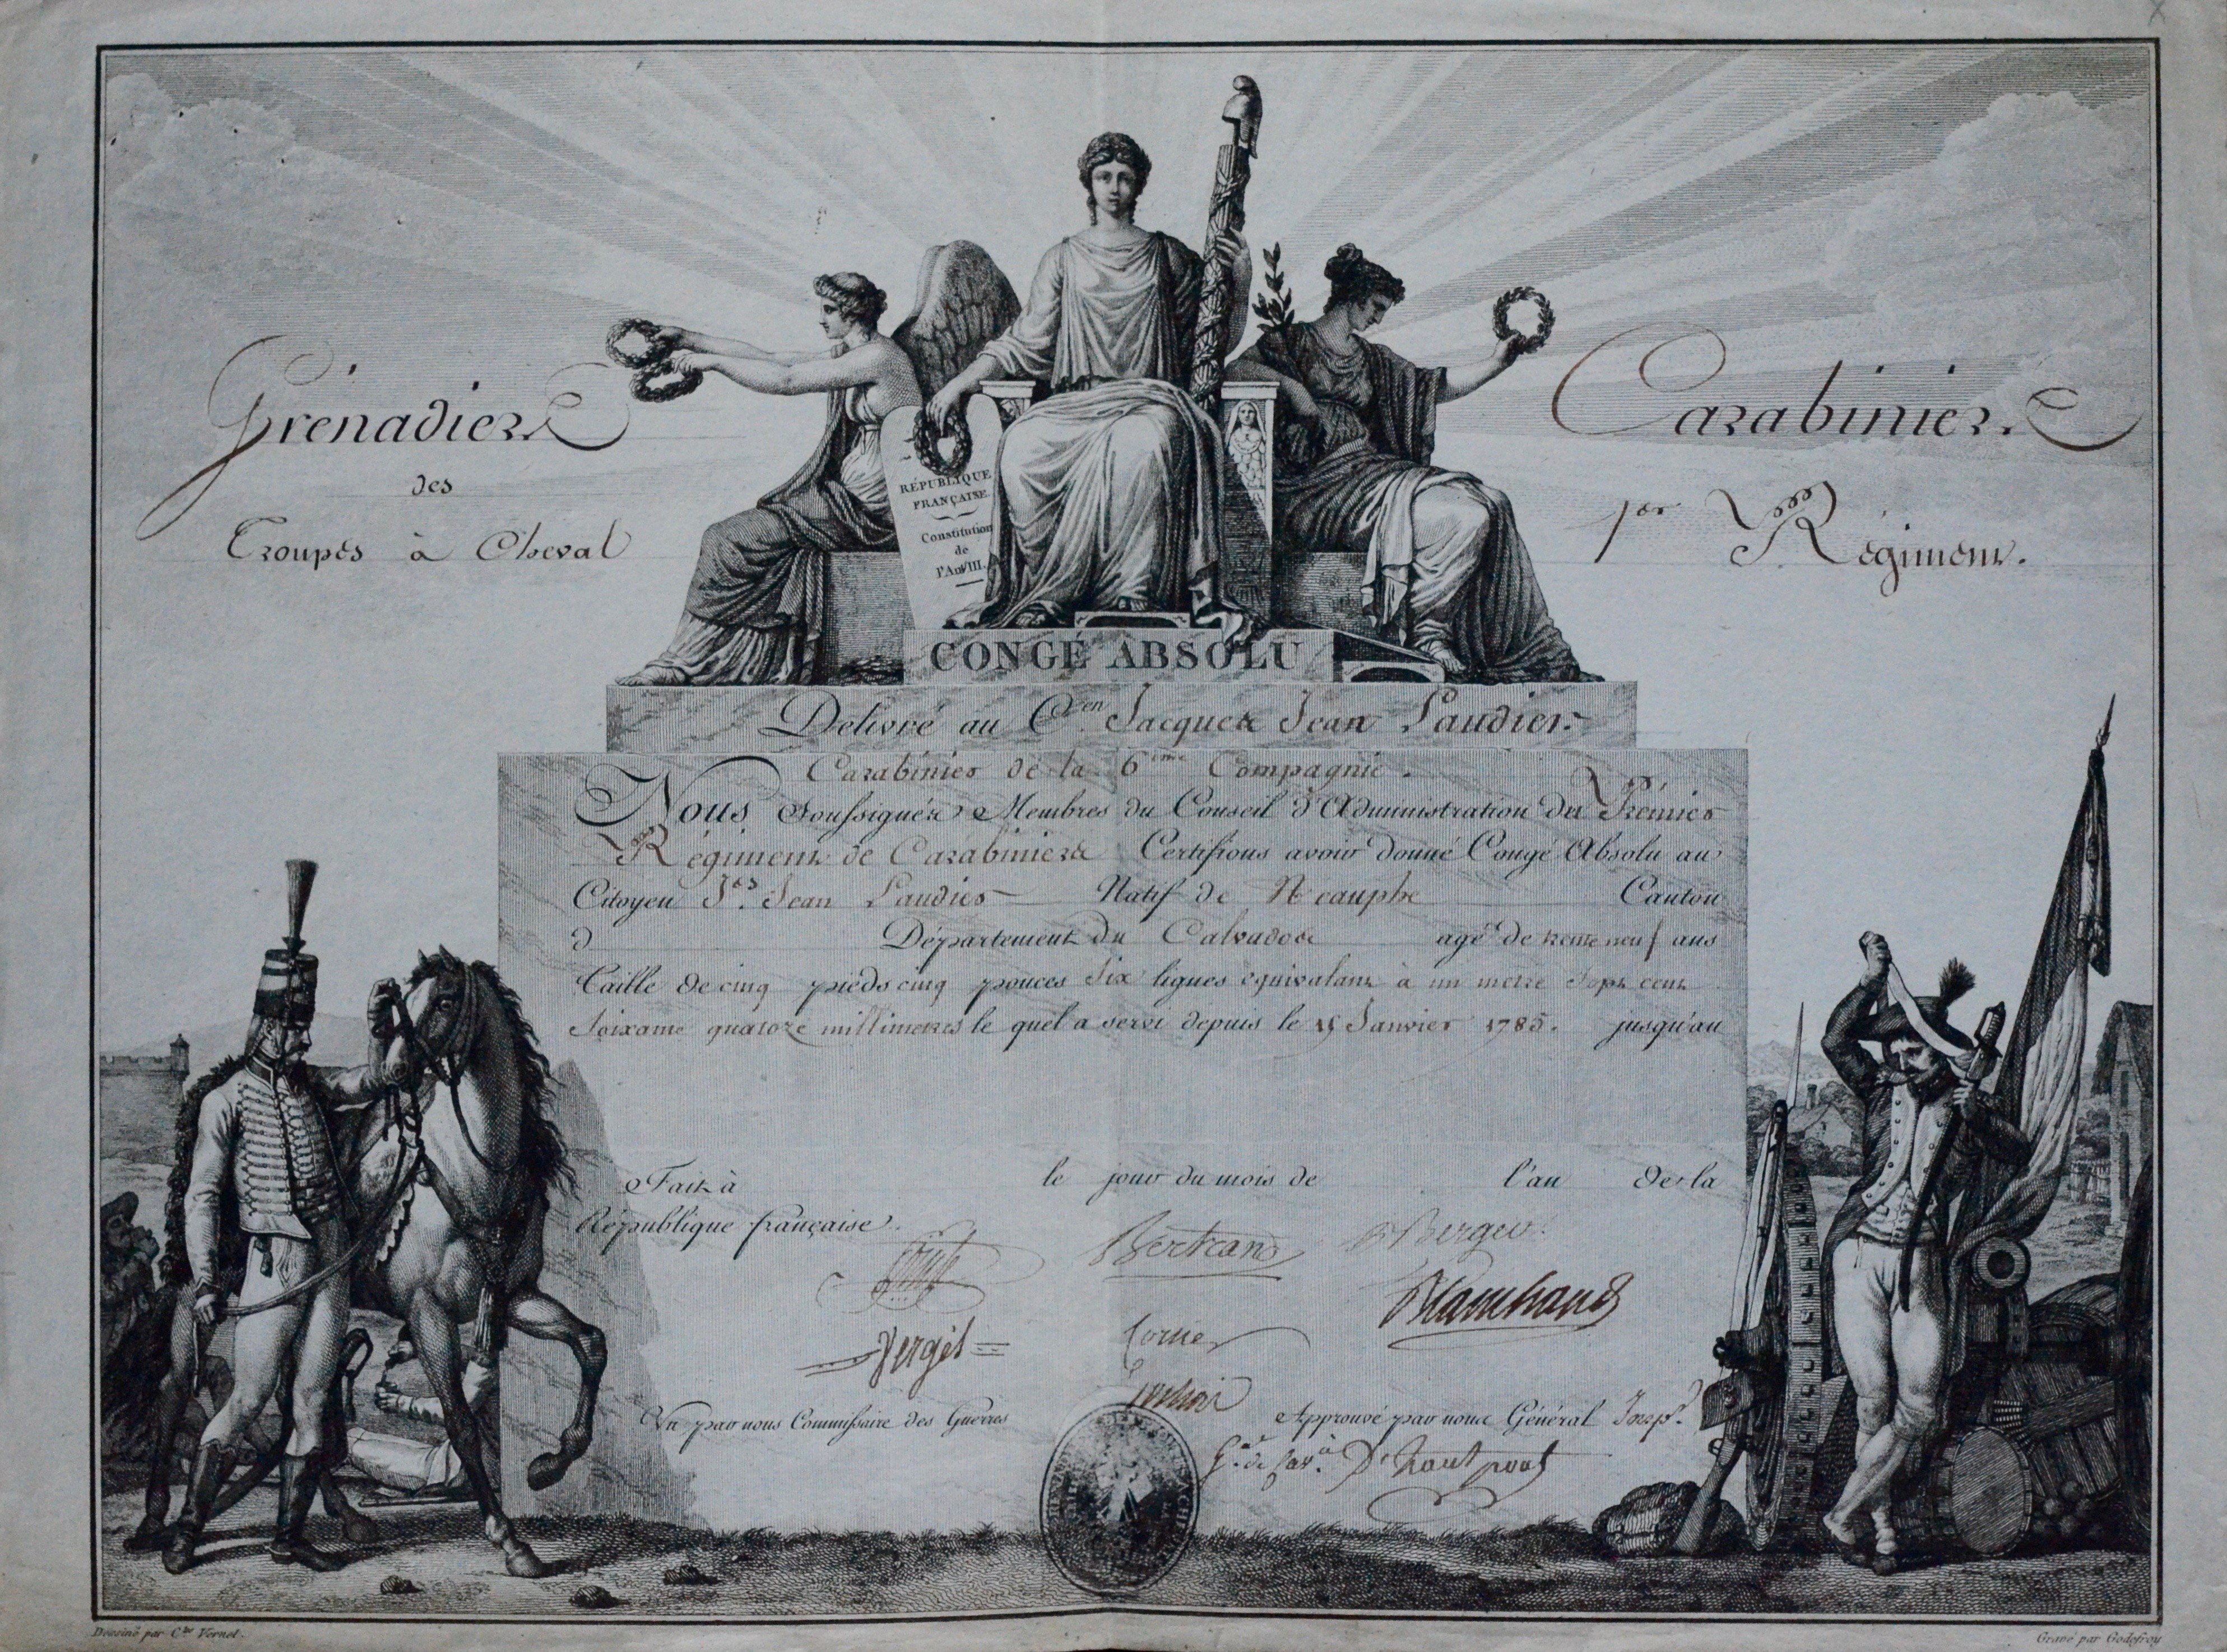 Grenadiers
des
Troupes à Cheval
Carabiniers.
1er Régiment.
RÉPUBLIQUE
FRANÇAISE
Constitution
de
l'An VIII.
CONGÉ ABSOLU
Délivré au C.en Jacques Jean Laudier.
Carabinier de la 6ème Compagnie.
Nous Soussignés Membres du Conseil d'Administration du Prémier
Régiment de Carabiniers Certifions avoir donné Congé Absolu au
Citoyen Jes. Jean Laudier Natif de Neauphe Canton
d Département du Calvados agé de trente neuf ans
Taille de cinq pieds cinq pouces six lignes équivalant à un metre Sept cent
Soixante quatorze millimetres le quel a servi depuis le 15 Janvier 1785. jusqu'au
Fait à le jour du mois de l'an de la
République française.
Bertrand Berger
Blanchard
Vergès Cornier
Vu par nous Commissaire des Guerres
Approuvé par nous Général Insp.r
G.al de Cav.ie D'hautpoul
Dessiné par C.le Vernet.
Gravé par Godefroy